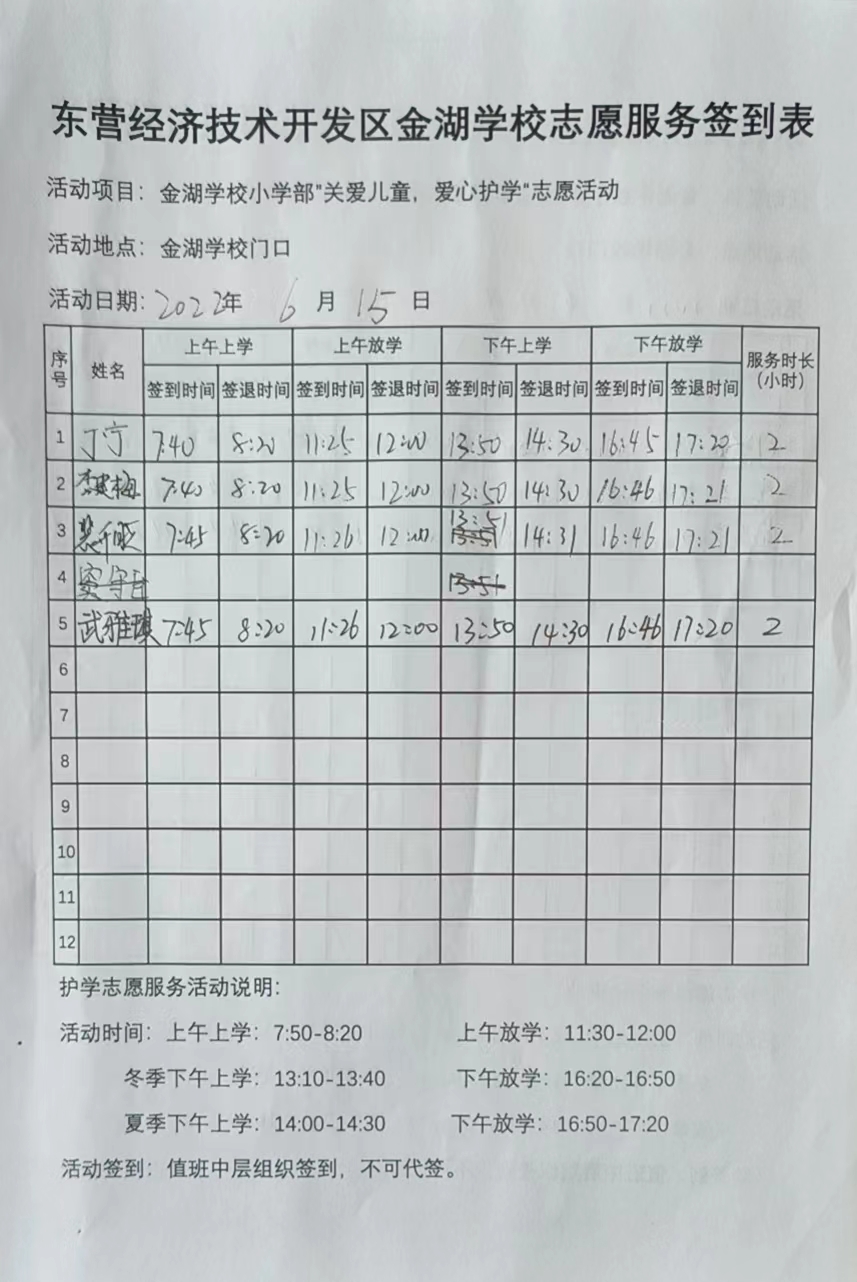 东营经济技术开发区金湖学校志愿服务签到表
活动项目：金湖学校小学部"关爱儿童，爱心护学"志愿活动
活动地点：金湖学校门口
活动日期：2022年 6 月 15 日
序号 姓名 上午上学 上午放学 下午上学 下午放学 服务时长（小时）
签到时间 签退时间 签到时间 签退时间 签到时间 签退时间 签到时间 签退时间
1 丁宁 7:40 8:20 11:25 12:00 13:50 14:30 16:45 17:20 2
2 7:40 8:20 11:25 12:00 13:50 14:30 16:46 17:21 2
3 7:45 8:20 11:26 12:00 13:51 14:31 16:46 17:21 2
4 13:51
5 武雅琪 7:45 8:20 11:26 12:00 13:50 14:30 16:46 17:20 2
6
7
8
9
10
11
12
护学志愿服务活动说明：
活动时间：上午上学：7:50-8:20 上午放学：11:30-12:00
冬季下午上学：13:10-13:40 下午放学：16:20-16:50
夏季下午上学：14:00-14:30 下午放学：16:50-17:20
活动签到：值班中层组织签到，不可代签。